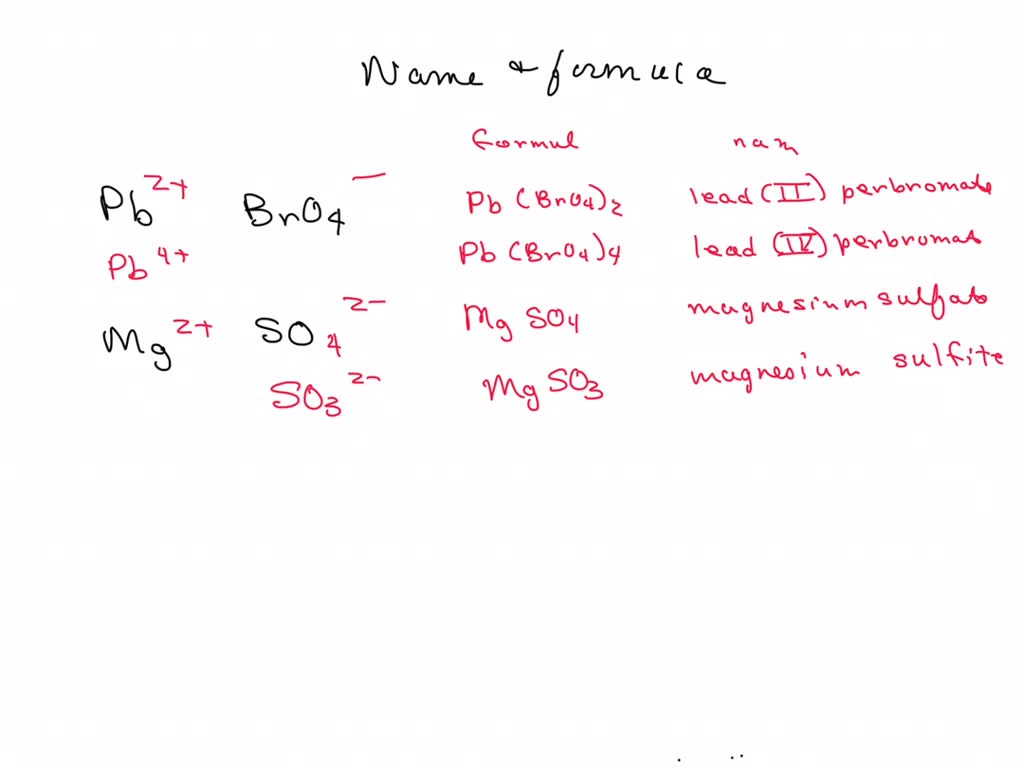 Name & formula
formul nam
Pb²⁺ BrO₄⁻ Pb(BrO₄)₂ lead (II) perbromate
Pb⁴⁺ Pb(BrO₄)₄ lead (IV) perbromat
Mg²⁺ SO₄²⁻ MgSO₄ magnesium sulfate
SO₃²⁻ MgSO₃ magnesium sulfite